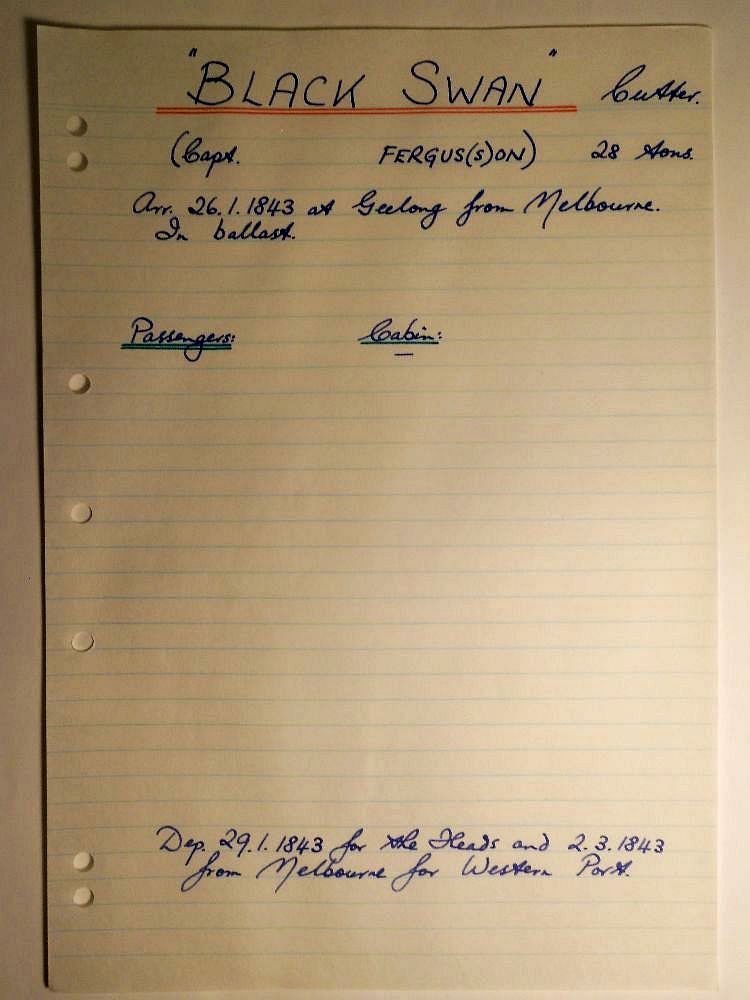 "BLACK SWAN" Cutter.
(Capt. FERGUS(S)ON) 28 tons.
Arr. 26.1.1843 at Geelong from Melbourne.
In ballast.
Passengers: Cabin:
—
Dep. 29.1.1843 for the Heads and 2.3.1843
from Melbourne for Western Port.